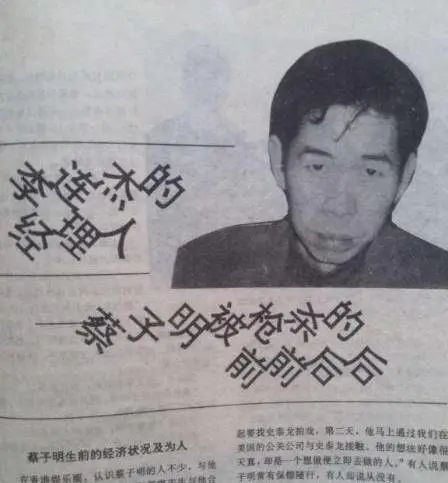 李连杰的
经理人
蔡子明被枪杀的
前前后后
蔡子明生前的经济状况及为人
在香港娱乐圈，认识蔡子明的人不少，与他
起要找史泰龙拍戏，第二天，他马上通过我们在
美国的公关公司与史泰龙接触，他的想法好像很
天真，却是一个想做便立即去做的人。”有人说蔡
子明常有保镖随行，有人却说从没有。